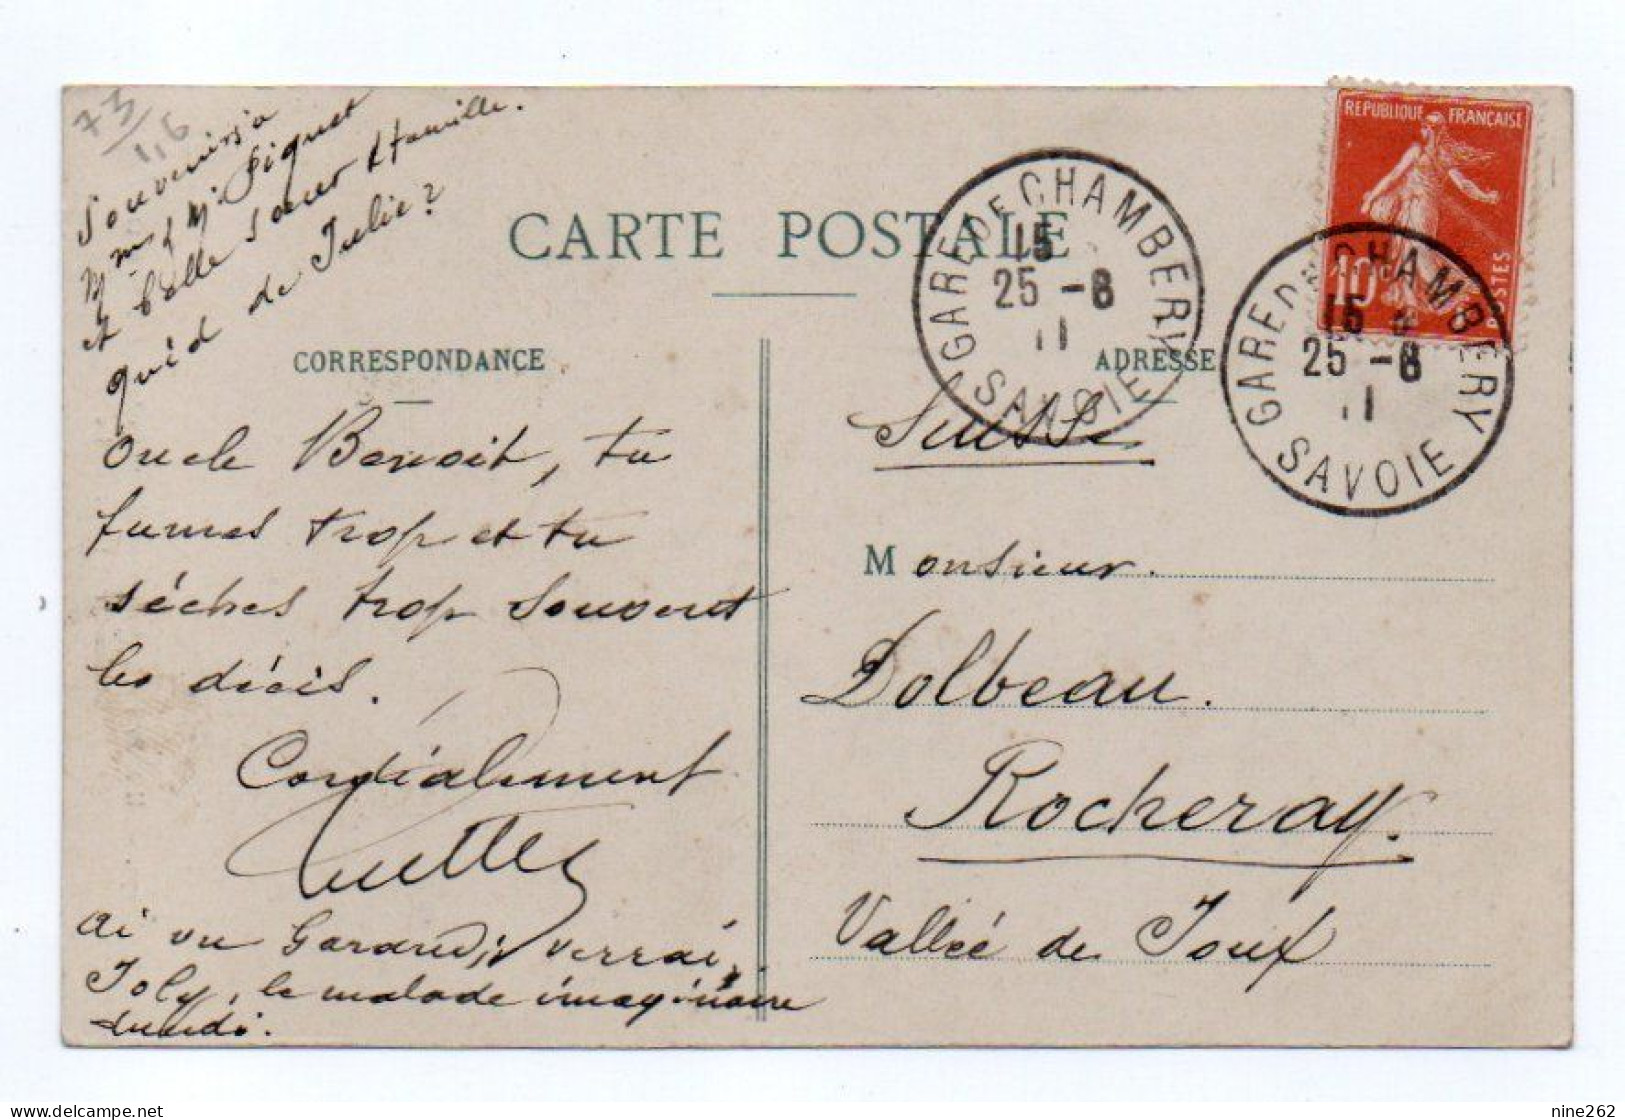 73
1,6
Souvenirs à
Mme & Mr Piguet
et belle sœur & famille.
quid de Julie?
CARTE POSTALE
CORRESPONDANCE
ADRESSE
REPUBLIQUE FRANÇAISE
10
POSTES
GARE DE CHAMBERY
15
25 - 8
11
SAVOIE
GARE DE CHAMBERY
15
25 - 8
11
SAVOIE
Oncle Benoit, tu
fumes trop et tu
sèches trop souvent
les décis.
Cordialement
ai vu Garand, verrai
Joly, le malade imaginaire
lundi.
Suisse
Monsieur.
Dolbeau.
Rocheray.
Vallée de Joux
nine262
delcampe.net